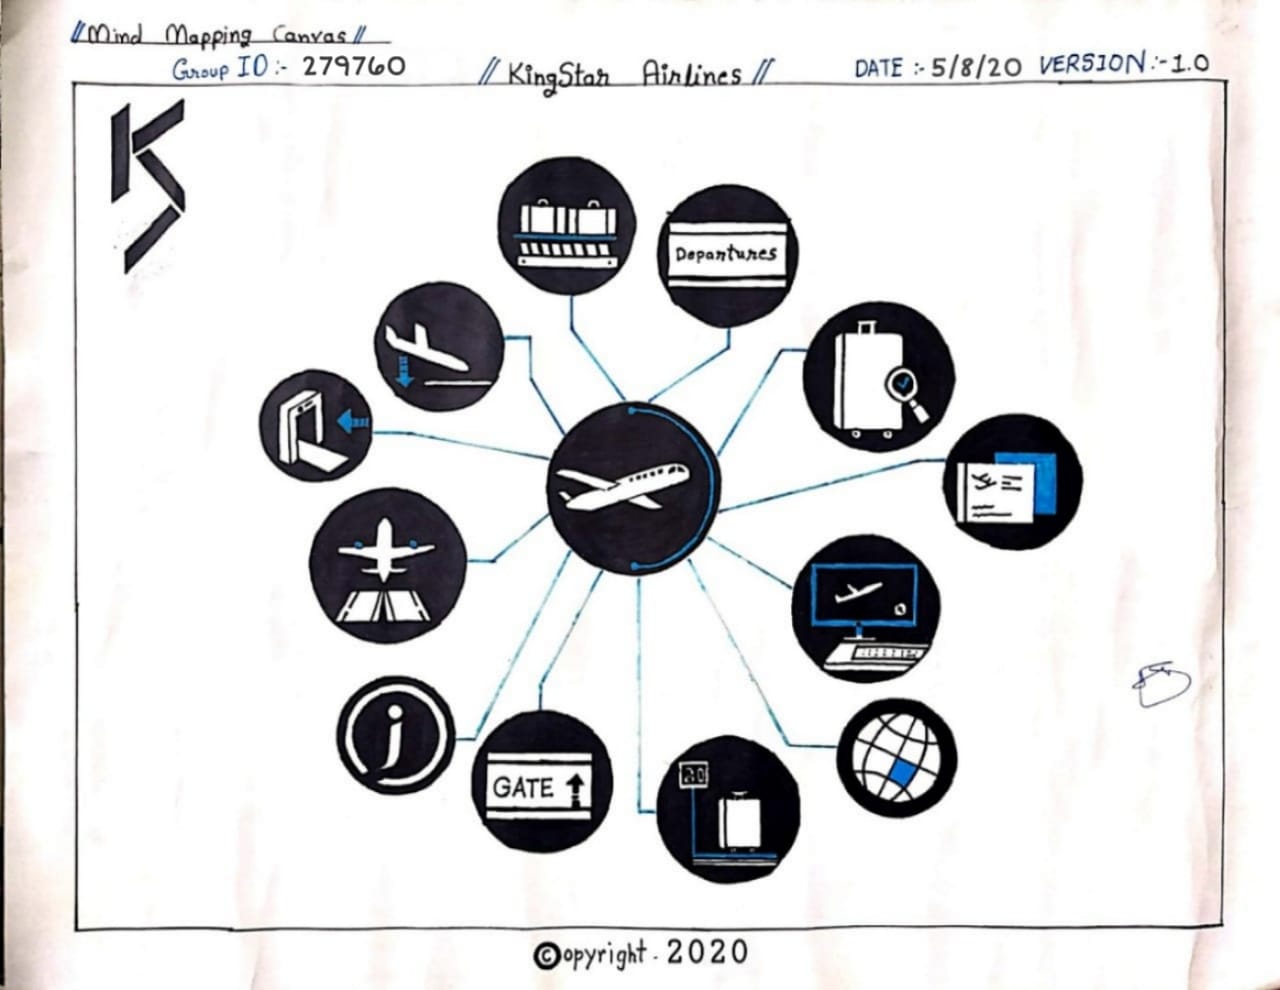 //Mind Mapping Canvas//
Group ID:- 279760
//KingStar Airlines//
DATE:-5/8/20 VERSION:-1.0
Departures
GATE
©opyright-2020